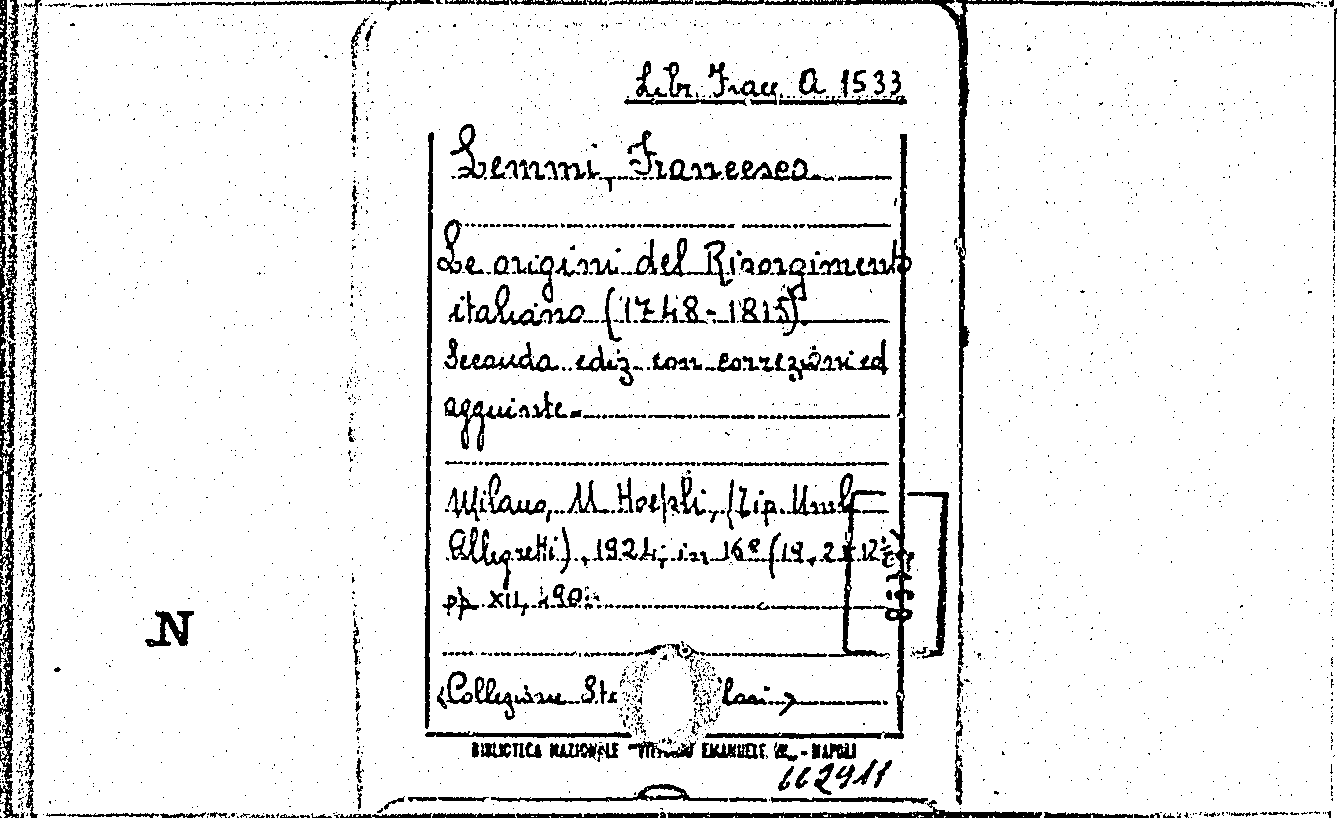 Libr. Fracc. A 1533
Lemmi, Francesco
Le origini del Risorgimento
italiano (1748-1815).
Seconda ediz. con correzioni ed
aggiunte.
Milano, U. Hoepli, (Tip. Umb.
Allegretti), 1924; in 16° (19,2x12
pp. XII, 490.
N
<Collezione Sto
BIBLIOTECA NAZIONALE "VITTORIO EMANUELE III" - NAPOLI
662911